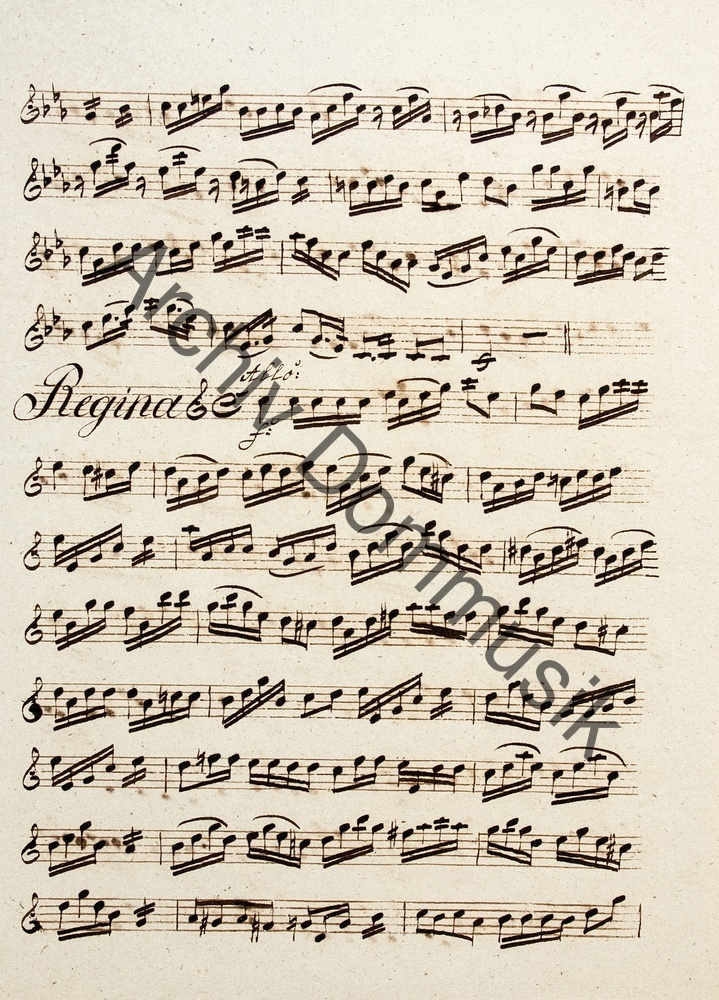 Allo:
Regina
f:
Archiv Dommusik